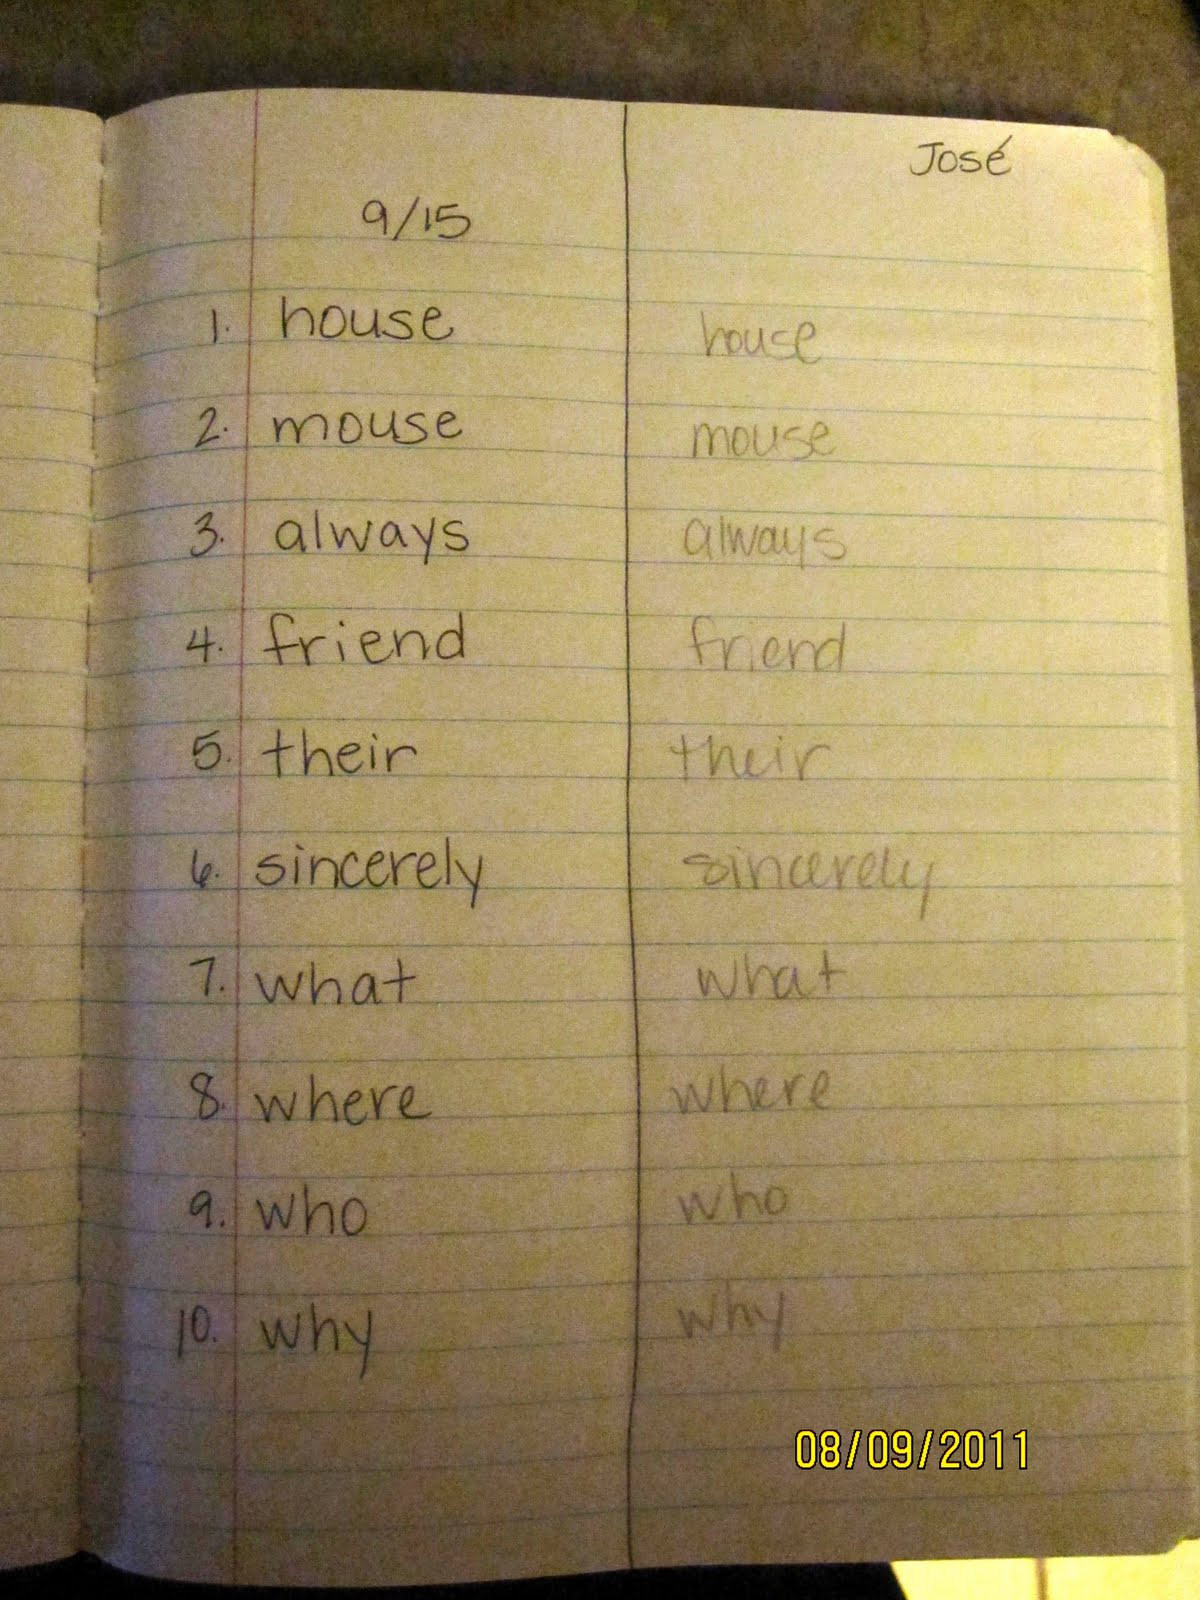 José
9/15
1. house house
2. mouse mouse
3. always always
4. friend friend
5. their their
6. sincerely sincerely
7. what what
8. where where
9. who who
10. why why
08/09/2011